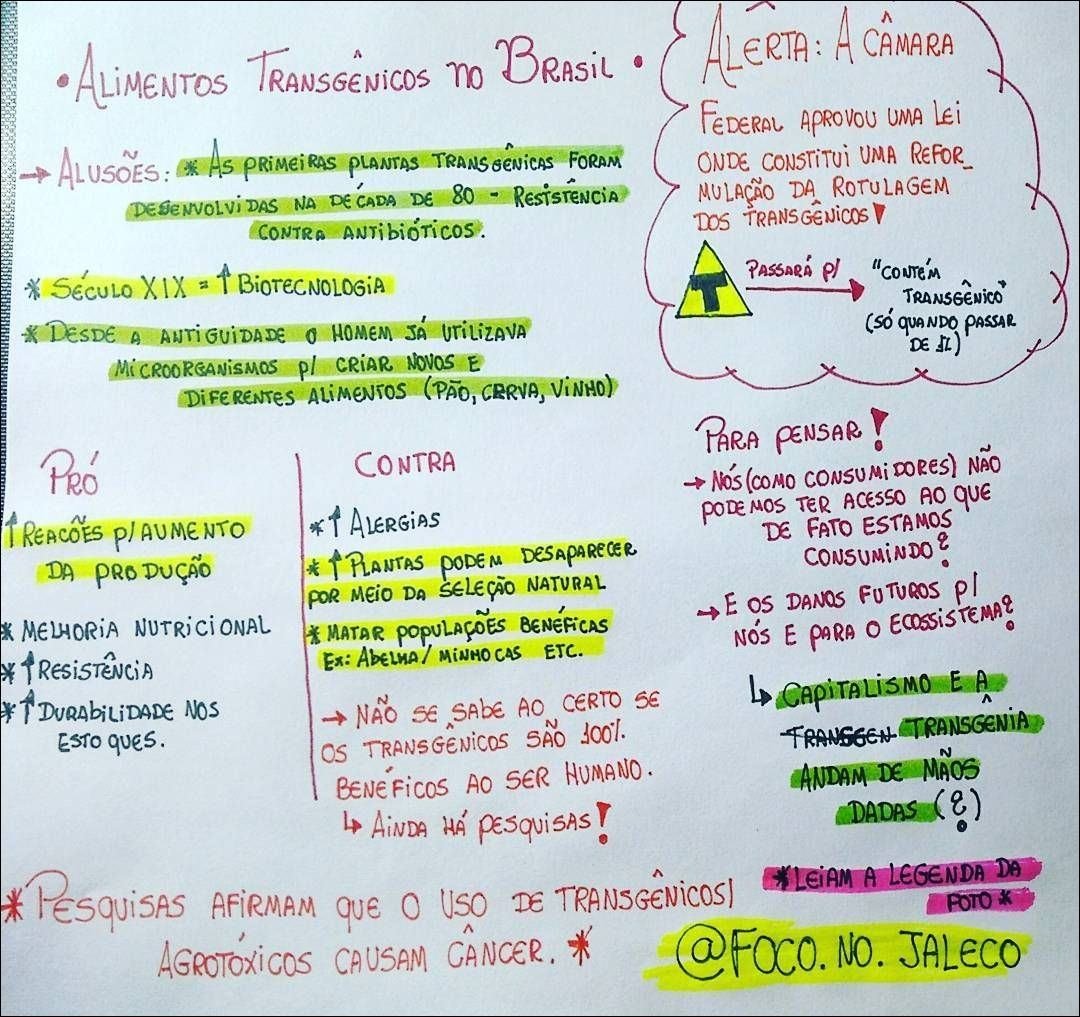 • ALIMENTOS TRANSGÊNICOS NO BRASIL •
→ ALUSÕES: * AS PRIMEIRAS PLANTAS TRANSGÊNICAS FORAM
DESENVOLVIDAS NA DÉCADA DE 80 - RESISTÊNCIA
CONTRA ANTIBIÓTICOS.
* SÉCULO XIX = ↑ BIOTECNOLOGIA
* DESDE A ANTIGUIDADE O HOMEM JÁ UTILIZAVA
MICROORGANISMOS P/ CRIAR NOVOS E
DIFERENTES ALIMENTOS (PÃO, CERVA, VINHO)
ALERTA: A CÂMARA
FEDERAL APROVOU UMA LEI
ONDE CONSTITUI UMA REFOR_
MULAÇÃO DA ROTULAGEM
DOS TRANSGÊNICOS!
T PASSARÁ P/ → "CONTÉM
TRANSGÊNICO"
(SÓ QUANDO PASSAR
DE 1%)
PRÓ
↑ REACÕES P/ AUMENTO
DA PRODUÇÃO
* MELHORIA NUTRICIONAL
* ↑ RESISTÊNCIA
* ↑ DURABILIDADE NOS
ESTOQUES.
CONTRA
* ↑ ALERGIAS
* ↑ PLANTAS PODEM DESAPARECER
POR MEIO DA SELEÇÃO NATURAL
* MATAR POPULAÇÕES BENÉFICAS
EX: ABELHA/ MINHOCAS ETC.
→ NÃO SE SABE AO CERTO SE
OS TRANSGÊNICOS SÃO 100%
BENÉFICOS AO SER HUMANO.
↳ AINDA HÁ PESQUISAS!
PARA PENSAR!
→ NÓS (COMO CONSUMIDORES) NÃO
PODEMOS TER ACESSO AO QUE
DE FATO ESTAMOS
CONSUMINDO?
→ E OS DANOS FUTUROS P/
NÓS E PARA O ECOSSISTEMA?
↳ CAPITALISMO E A
TRANSGEN TRANSGÊNIA
ANDAM DE MÃOS
DADAS (?)
* LEIAM A LEGENDA DA
FOTO *
* PESQUISAS AFIRMAM QUE O USO DE TRANSGÊNICOS/
AGROTÓXICOS CAUSAM CÂNCER. *
@FOCO.NO.JALECO